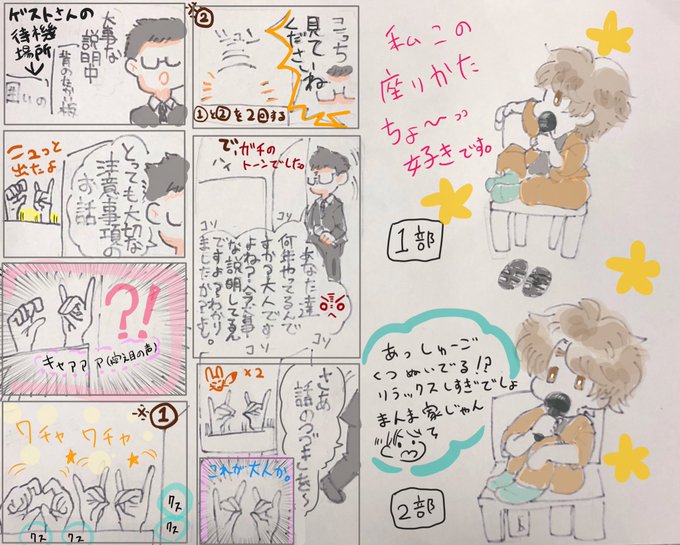 ゲストさんの
待機
場所
大事な
説明中
囲いの
ニュっと
出たよ
とっても大切な
注意事項の
お話
?!
キャァァァ
※①
ワチャ ワチャ
クス クス
クス
クス
※②
こっち
見ていね
ください
①と②を2回する
で、ガチの
トーンでした。
ハイ
コソ
コソ
あなた達
何年やってるんで
すか?大人です
よね?今大事
な説明してるん
ですよ?わかり
ましたか?よし。
×2
さあ
話のつづきを〜
これが大人か。
私この
座りかた
ちょ〜っっ
好きです。
1部
あっしゅーご
くつぬいでる!?
リラックスしすぎでしょ
まんま家じゃん
て
2部